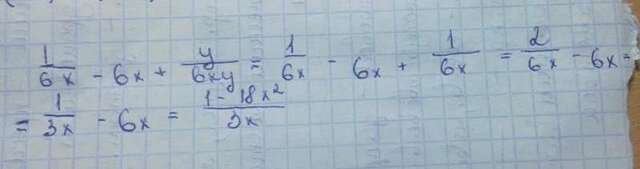 1/6x - 6x + y/6xy = 1/6x - 6x + 1/6x = 2/6x - 6x =
= 1/3x - 6x = 1 - 18x²/3x